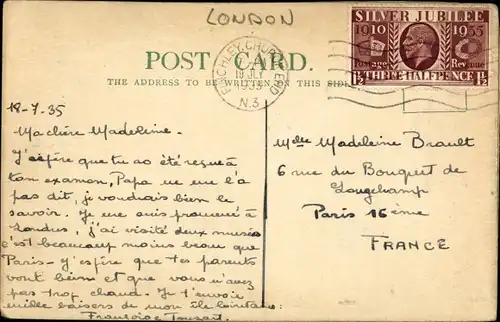 LONDON
POST CARD.
THE ADDRESS TO BE WRITTEN ON THIS SIDE
FINCHLEY, CHURCH END
19 JLY
N.3
SILVER JUBILEE
1910 1935
Postage Revenue
1½ THREE HALFPENCE 1½
18-7.35
Ma chère Madeleine.
J'espère que tu as été reçue à
ton examen, Papa ne me l'a
pas dit, je voudrais bien le
savoir. Je me suis promené à
Londres, j'ai visité deux musées
c'est beaucoup moins beau que
Paris - j'espère que tes parents
vont bien et que vous n'avez
pas trop chaud. Je t'envoie
mille baisers de mon île lointaine:
Françoise
Melle Madeleine Brault
6 rue du Bouquet de
Longchamp
Paris 16ème
FRANCE